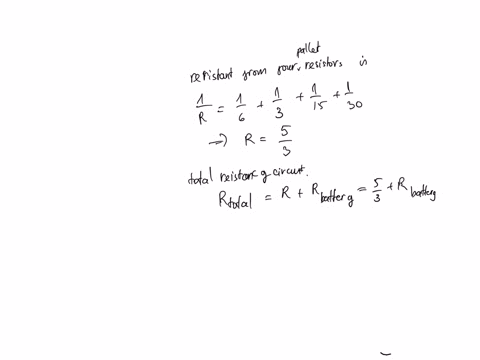 pallet
resistant from four resistors is
1/R = 1/6 + 1/3 + 1/15 + 1/30
=> R = 5/3
total resistance g circuit.
R total = R + R battery = 5/3 + R battery